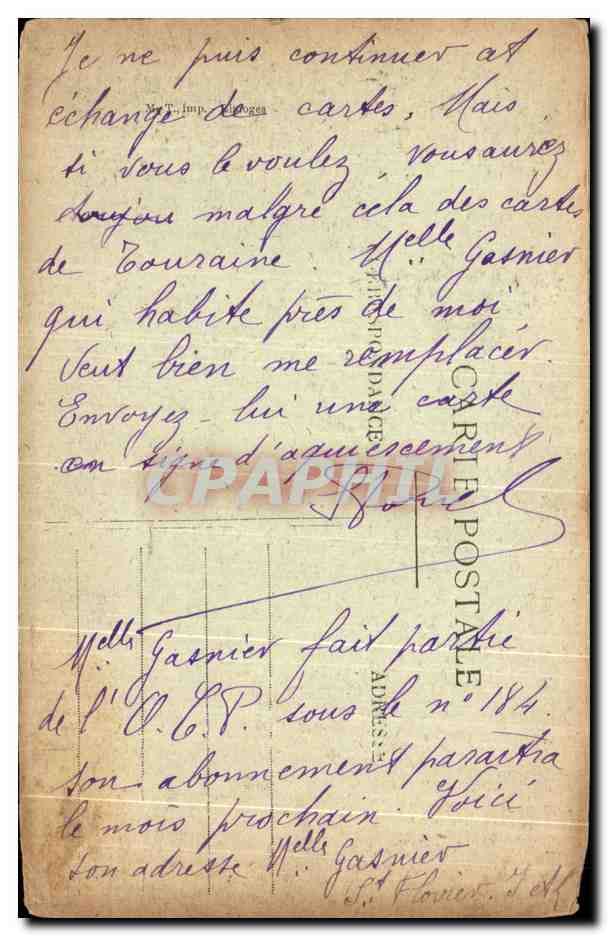 Je ne puis continuer at
échange de cartes, Mais
si vous le voulez, vous aurez
toujou malgré cela des cartes
de Touraine. Melle Gasnier
qui habite près de moi
veut bien me remplacer.
Envoyez-lui une carte
en signe d'aquiescement
Melle Gasnier fait partie
de l'O.C.P. sous le n° 184.
son abonnement paraîtra
le mois prochain. Voici
son adresse Melle Gasnier
St Flovier. I et L
M. T., imp. Limoges
CARTE POSTALE
CORRESPONDANCE
ADRESSE
CPAPHIL